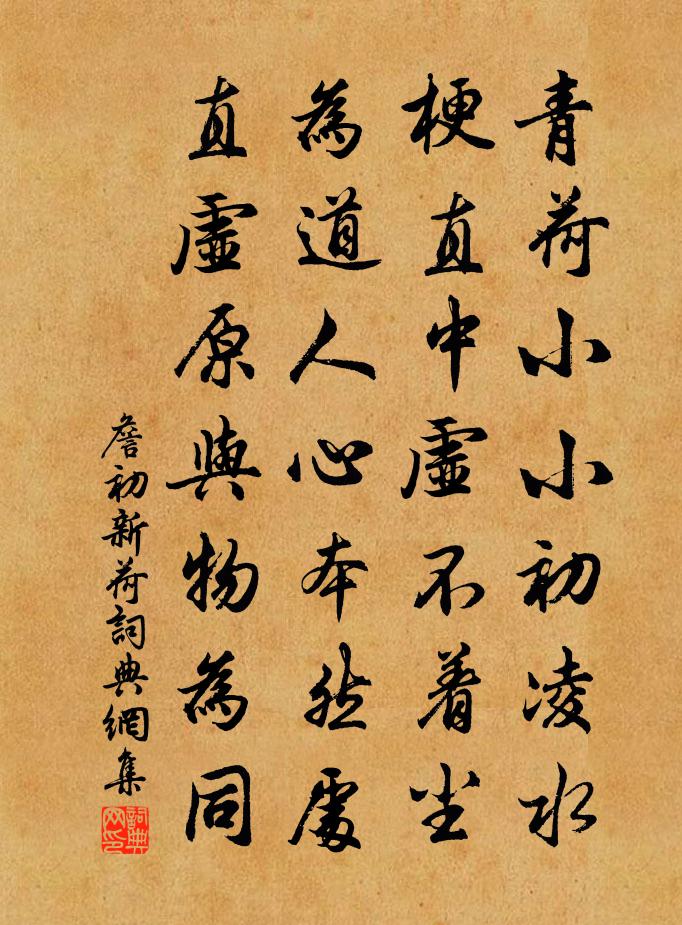 青荷小小初凌水
梗直中虛不着尘
為道人心本然處
直虛原與物為同
詹初新荷詞典網集
詞典网印